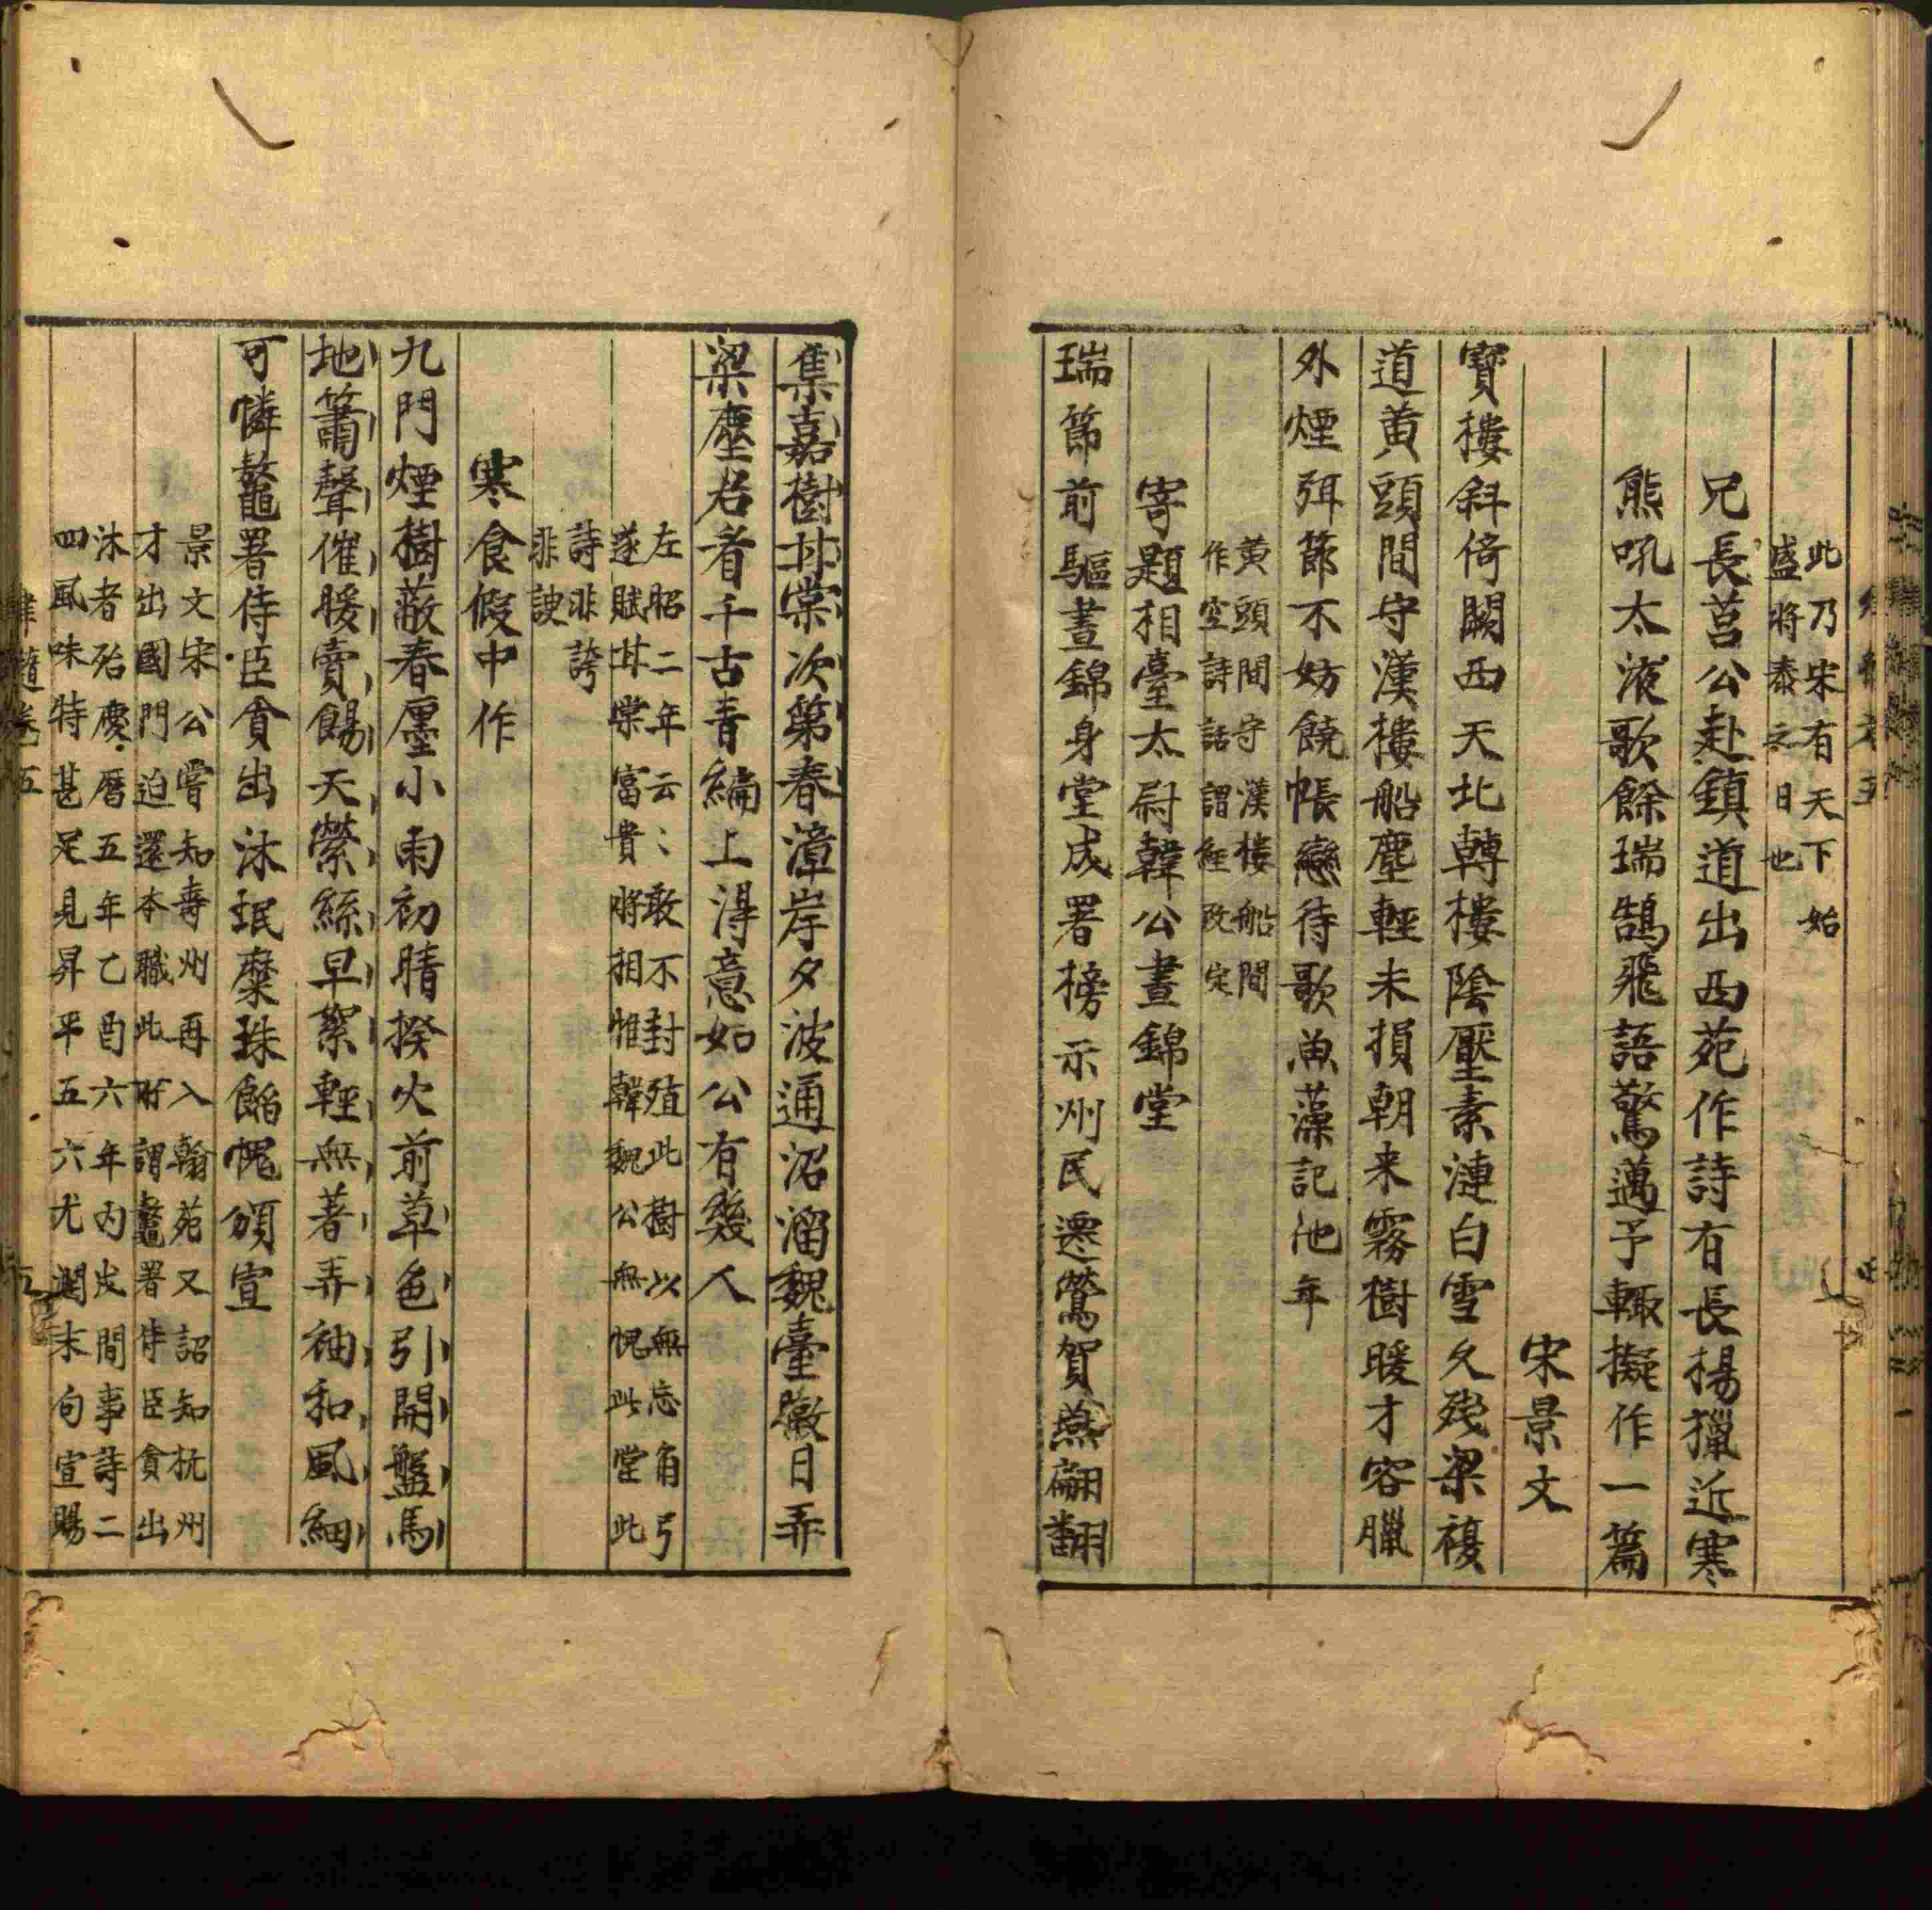 此乃宋有天下始
盛將泰之日也
兄長莒公赴鎮道出西苑作詩有長楊獵近寒
熊吼太液歌餘瑞鵠飛語驚邁予輙擬作一篇
宋景文
寶樓斜倚闕西天北轉樓陰壓素漣白雪久殘梁複
道黄頭閒守漢樓船塵輕未損朝来霧樹暖才容臘
外煙弭節不妨饒帳戀待歌魚藻記池年
黄頭間守漢樓船間
作空詩話謂經改定
寄題相臺太尉韓公晝錦堂
瑞節前驅晝錦身堂成署榜示州民遷鶯賀燕翩翻
集嘉樹甘棠次第春漳岸夕波通沼溜魏臺徽日弄
梁塵君看千古青編上得意如公有幾人
左昭二年云〻敢不封殖此樹以無忘角弓
遂賦甘棠富貴將相惟韓魏公無愧此堂此
詩非誇
非諛
寒食假中作
九門煙樹蔽春廛小雨初晴揆火前草色引開盤馬
地簫聲催暖賣餳天縈絲早絮輕無著弄袖和風細
可憐鼇署侍臣貪出沐珉糜珠餡愧頒宣
景文宋公嘗知壽州再入翰苑又詔知杭州
才出國門迫還本職此所謂鼇署侍臣貪出
沐者殆慶曆五年乙酉六年丙戌間事詩二
四風味特甚足見昇平五六尤潤末句宣賜
律髓卷五